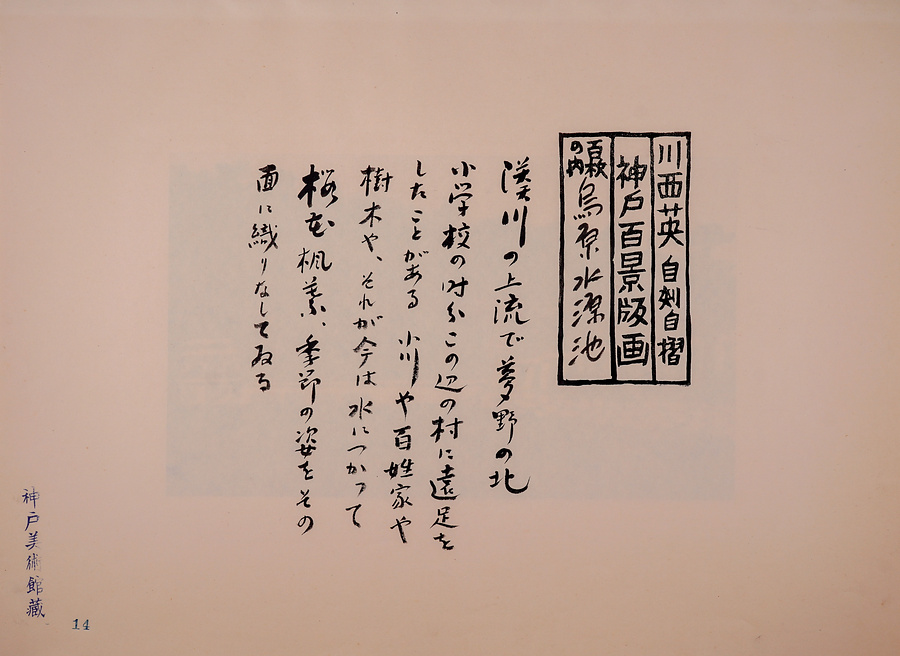 川西英 自刻自摺
神戸百景版画
百秋の内 烏原水源池
湊川の上流で夢野の北
小学校の時分この辺の村に遠足を
したことがある 小川や百姓家や
樹木や、それが今は水につかつて
桜花楓葉、季節の姿をその
面に織りなしてゐる
神戸美術館蔵
14